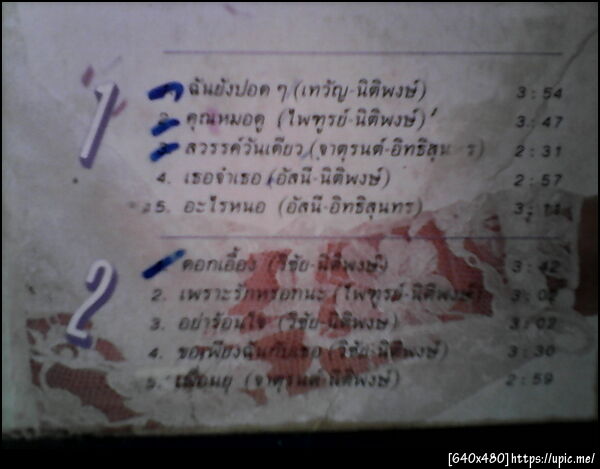 1
ฉันยังปอด ๆ (เทวัญ-นิติพงษ์) 3:54
2. คุณหมอดู (ไพฑูรย์-นิติพงษ์) 3:47
3. สวรรค์วันเดียว (จาตุรนต์-อิทธิสุน ร) 2:31
4. เธอจำเธอ (อัสนี-นิติพงษ์) 2:57
5. อะไรหนอ (อัสนี-อิทธิสุนทร)
2
ดอกเอื้อง (วิชัย-นิติพงษ์) 3:42
2. เพราะรักหรอกนะ (ไพฑูรย์-นิติพงษ์)
3. อย่าร้อนใจ (วิชัย-นิติพงษ์) 3:02
4. ขอเพียงฉันกับเธอ (วิชัย-นิติพงษ์) 3:30
5. เพื่อนยุ (จาตุรนต์-นิติพงษ์) 2:59
[640x480]https://upic.me/